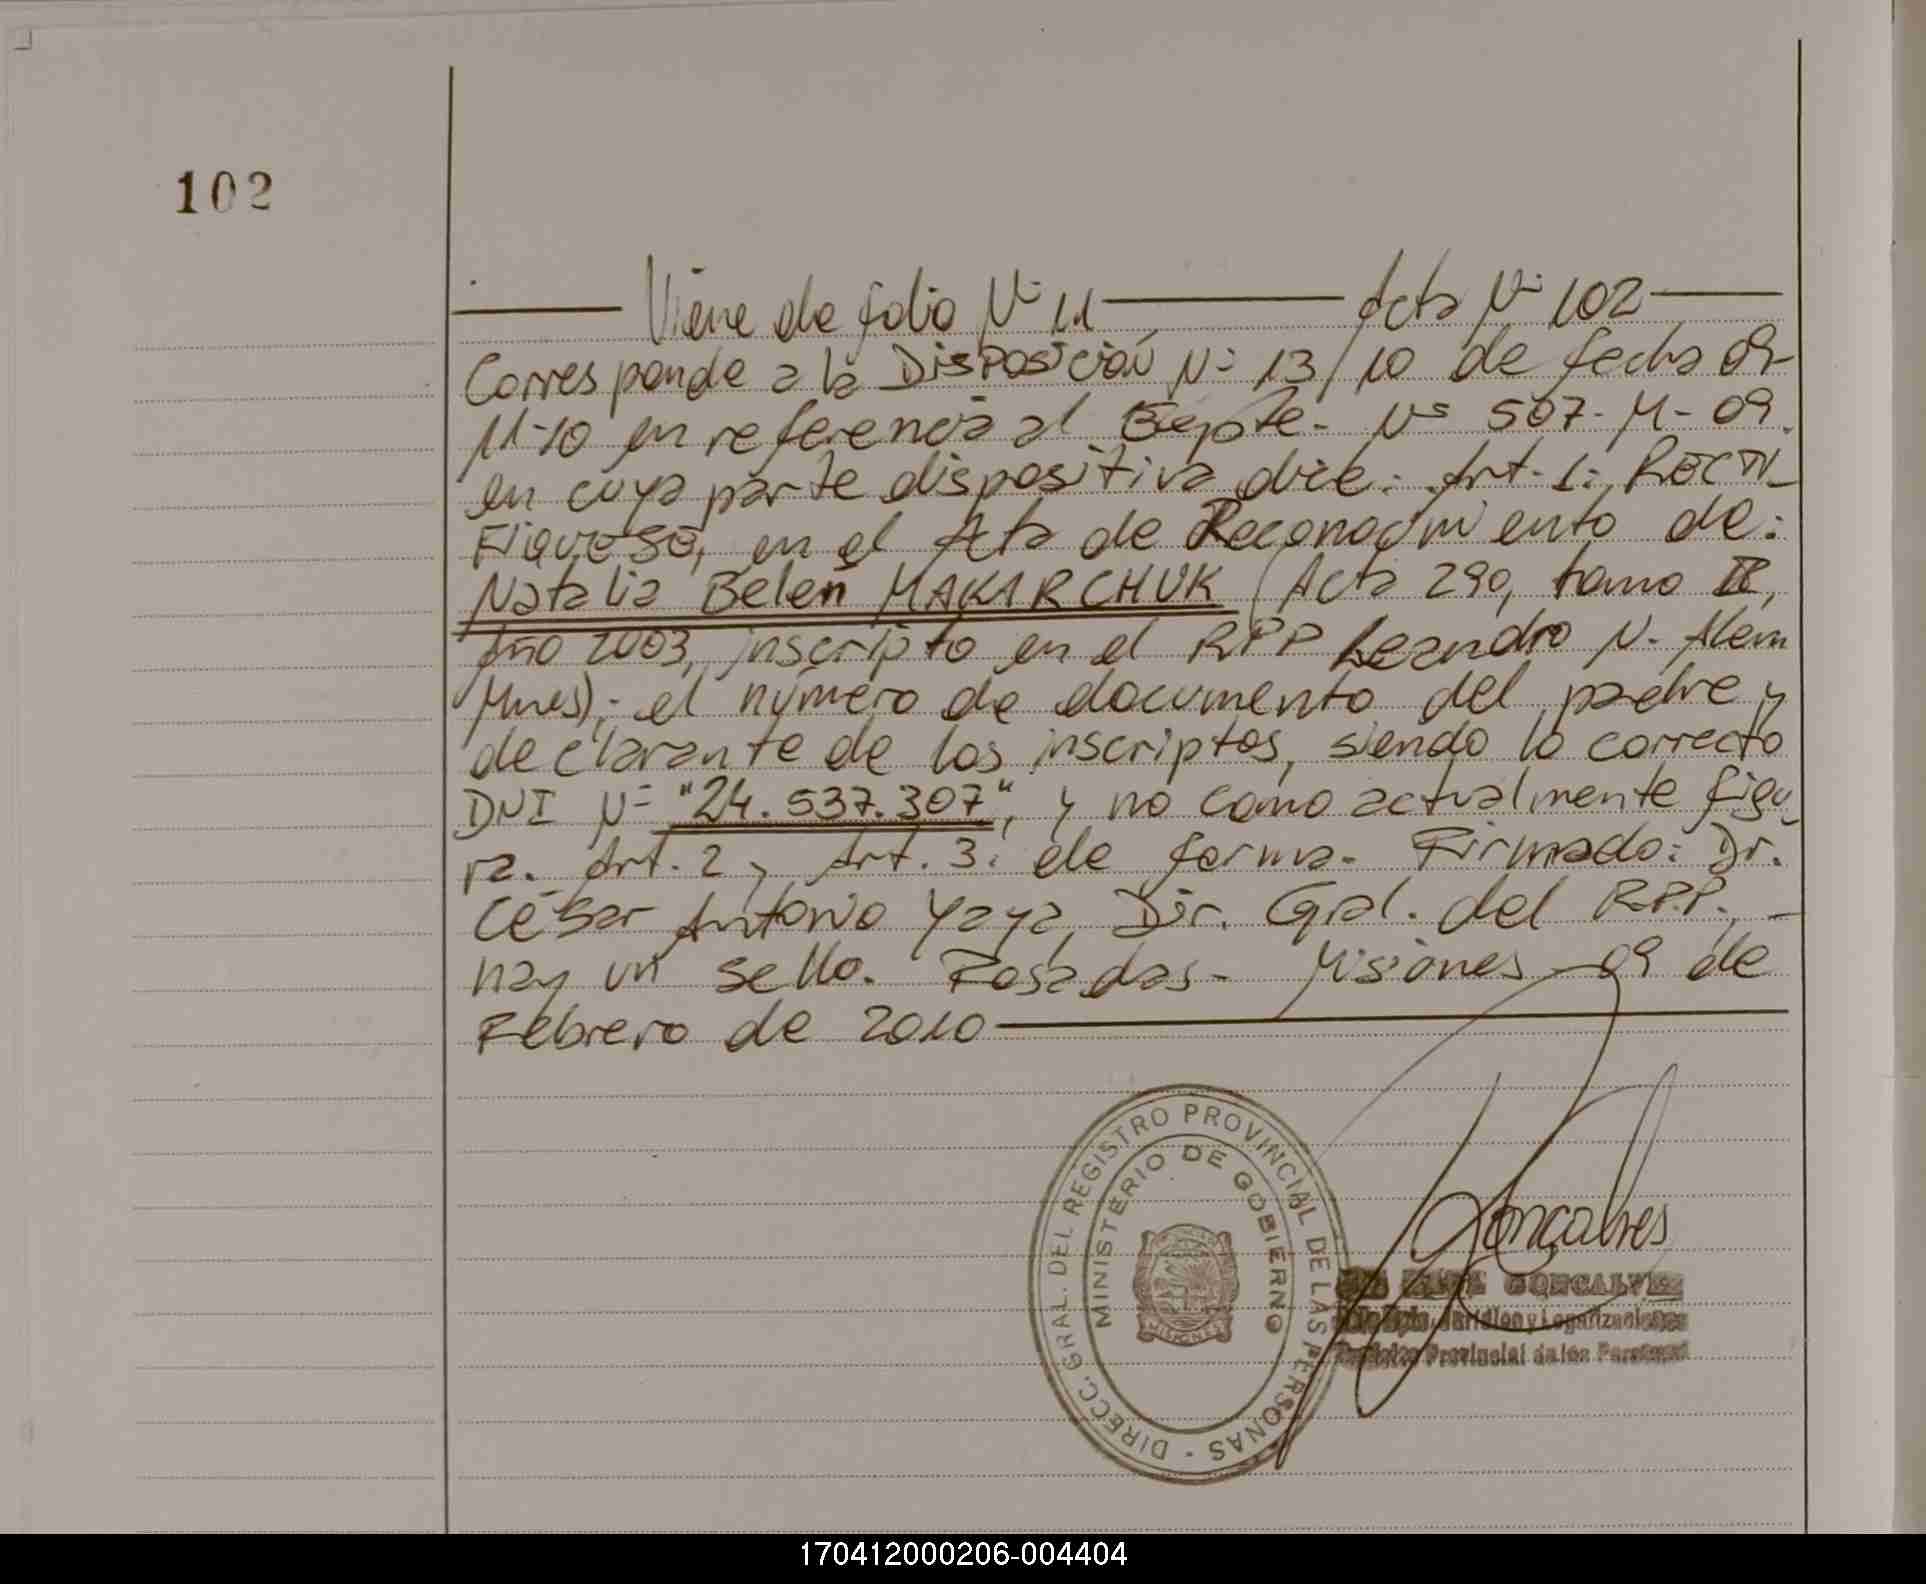 102
Viene de folio Nº 11 Acta Nº 102
Corresponde a la Disposición Nº 13/10 de fecha 09-
11-10 en referencia al Expte. Nº 507-M-09.
en cuya parte dispositiva dice: Art. 1: RECTI-
FIQUESE, en el Acta de Reconocimiento de:
Natalia Belén MAKARCHUK (Acta 290, tomo II,
Año 2003, inscripto en el RPP Leandro N. Alem
Mnes); el número de documento del padre y
declarante de los inscriptos, siendo lo correcto
DNI Nº "24.537.307", y no como actualmente figu
ra. Art. 2, Art. 3: de forma. Firmado: Dr.
César Antonio Yaya, Dir. Gral. del R.P.P.,-
hay un sello. Posadas- Misiones 09 de
Febrero de 2010
DIRECC. GRAL. DEL REGISTRO PROVINCIAL DE LAS PERSONAS -
MINISTERIO DE GOBIERNO
MISIONES
Gonçalves
GONCALVES
Jurídico y Legalizaciones
Provincial de las Personas
170412000206-004404